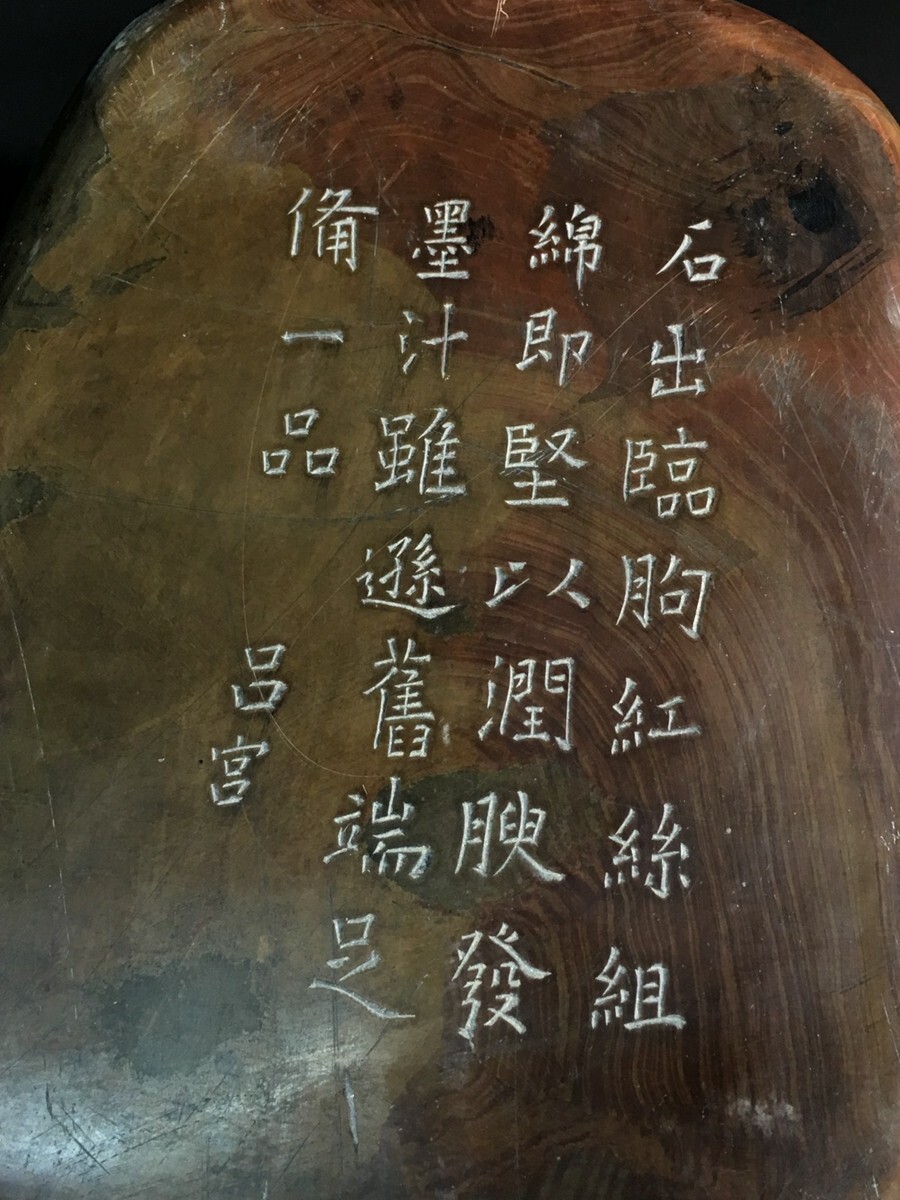 石出臨朐紅絲組
綿即堅以潤腴發
墨汁雖遜舊端足
備一品
呂宮